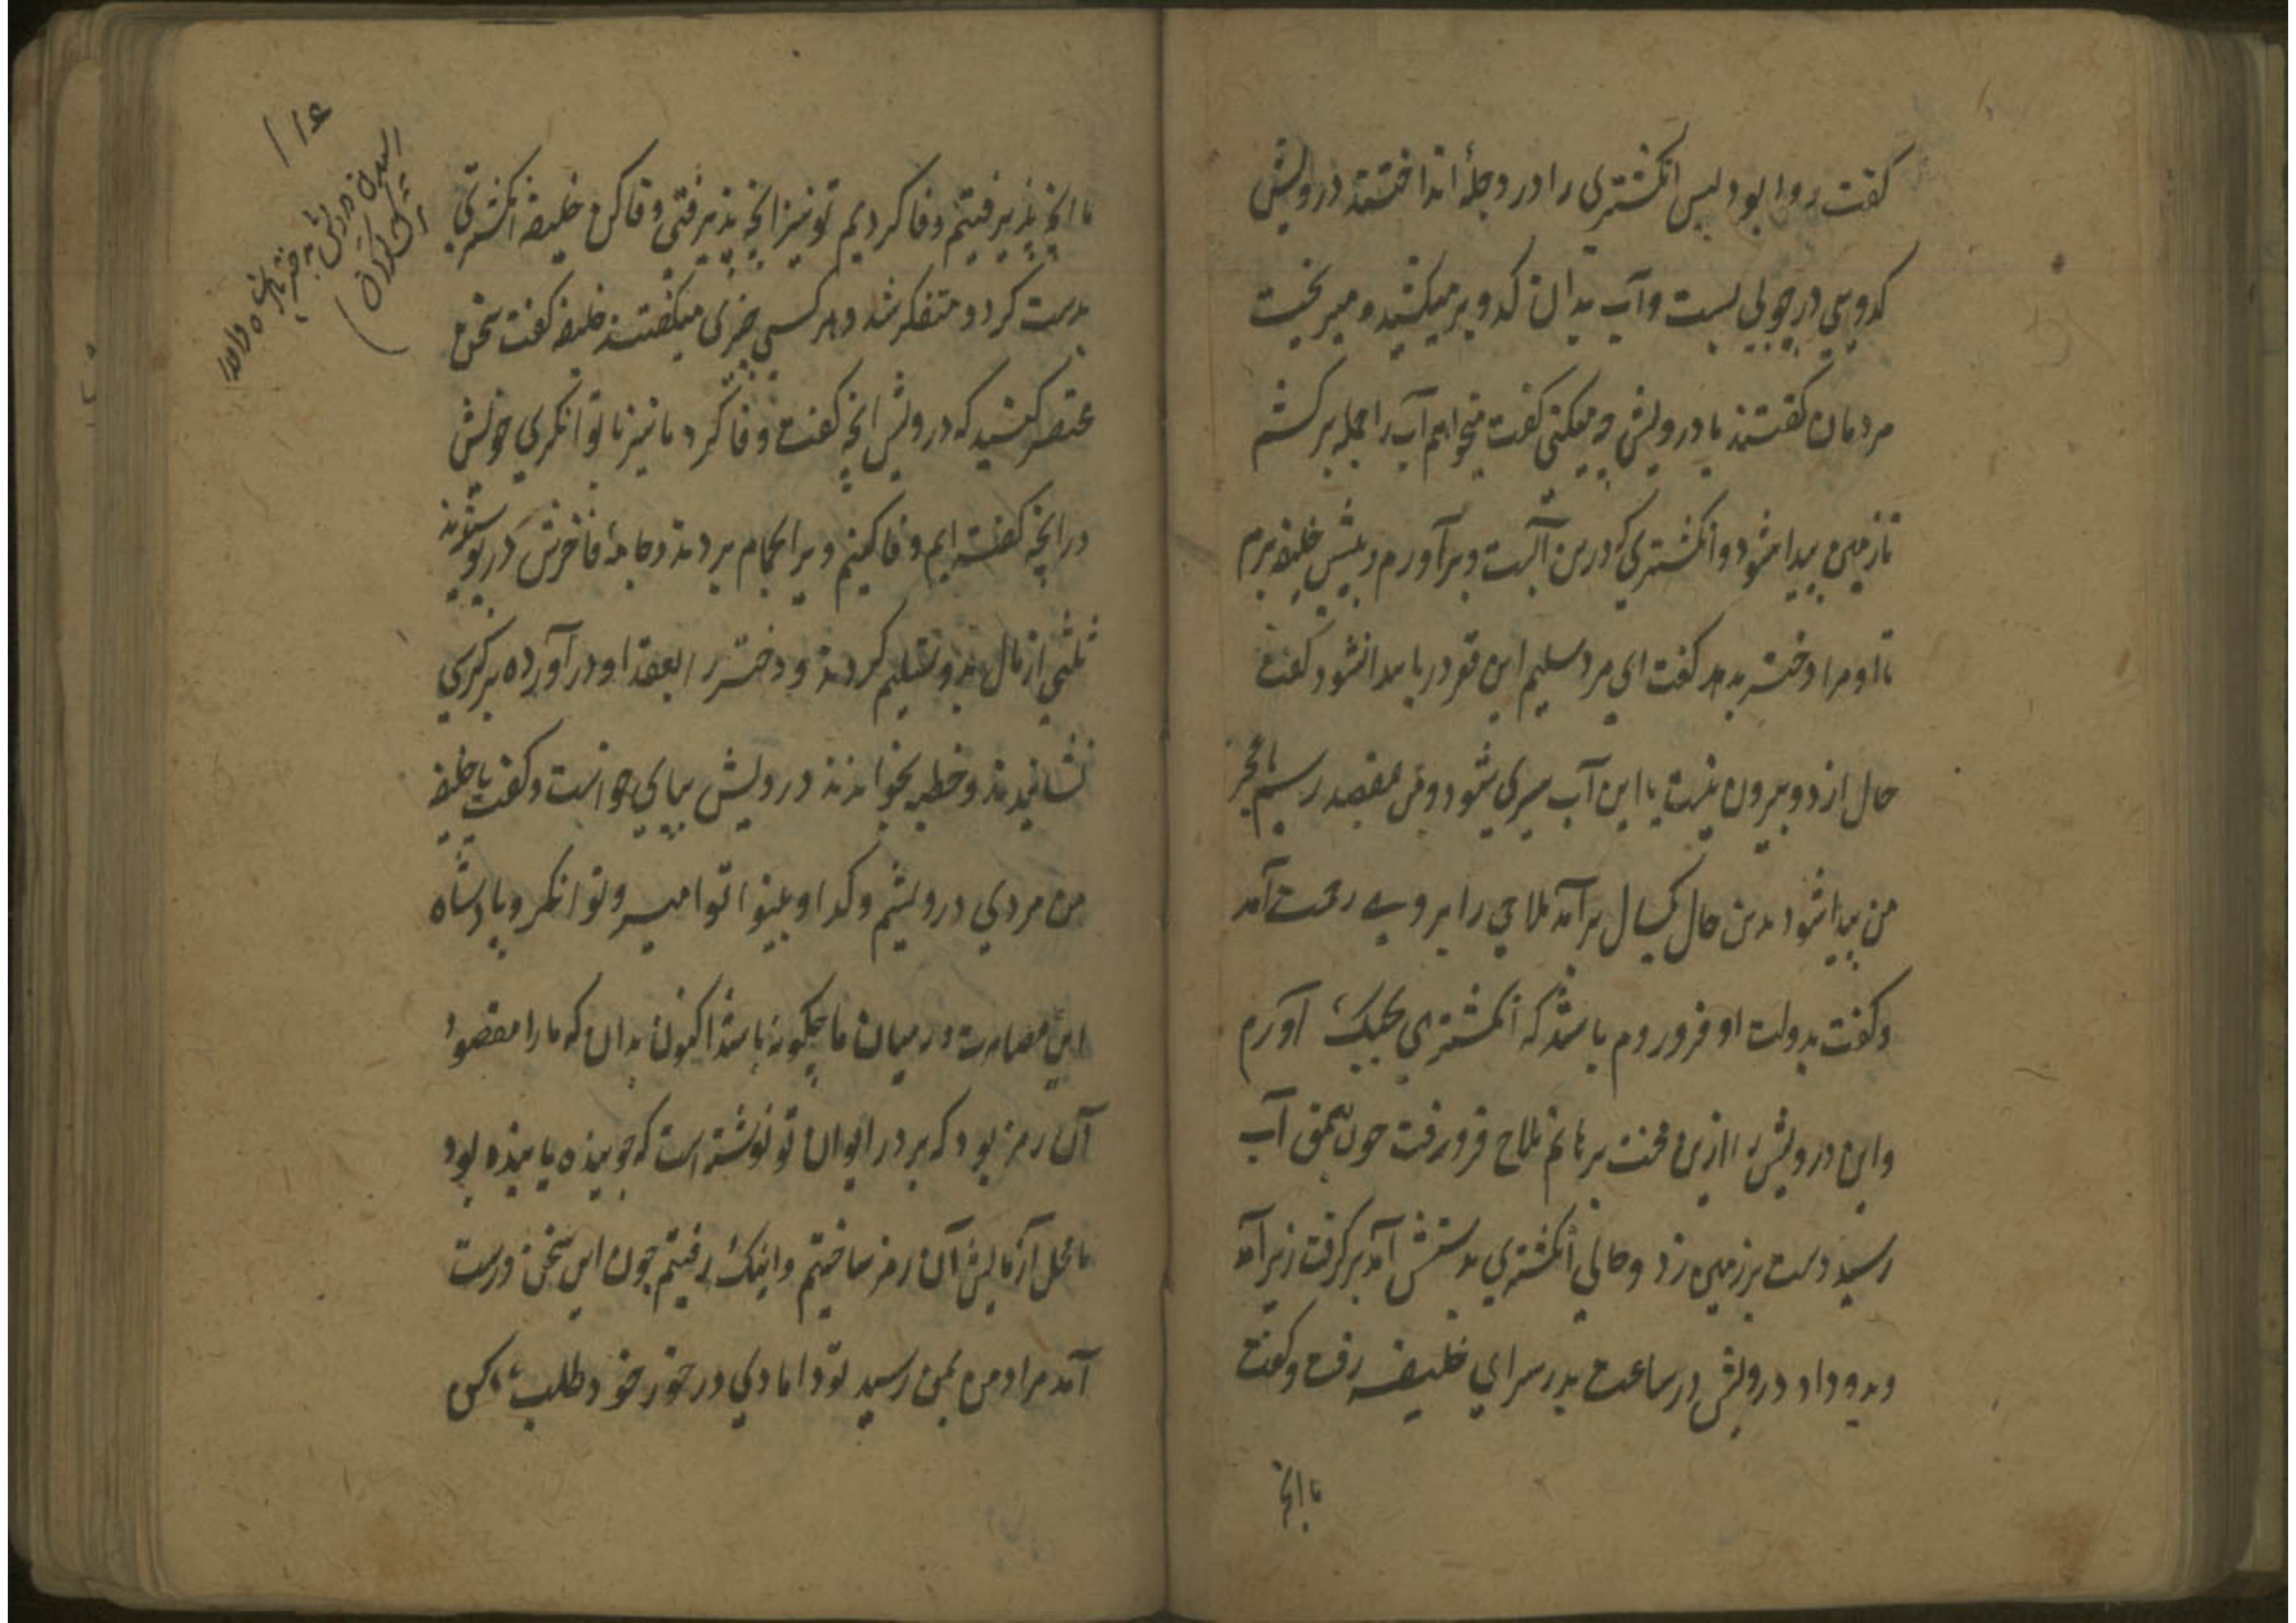 کفت روا بود پس انکشتری را در دجله انداختند درویش
کدویی در چوبی بست و آب بدان کدو بر میکشید و میریخت
مردمان کفتند یا درویش چه میکنی کفت میخواهم آب را جمله برکشم
تا زمین پیدا شود و انکشتری که درین آبست برآورم و پیش خلیفه برم
تا او مرا دختر بدهد کفت ای مرد سلیم این قعر دریا پیدا نشود کفت
حال از دو بیرون نیست یا این آب سپری شود و من بمقصد رسم یا عجز
من پیدا شود بدین حال یکسال برآمد ملاحی را بر وی رحمت آمد
و کفت بدولت او فرو روم باشد که انکشتری بچنک آورم
و این درویش را ازین محنت برهانم ملاح فرو رفت چون بعمق آب
رسید دست بر زمین زد و حالی انکشتری بدستش آمد برکرفت زبر آمد
و بدو داد درویش در ساعت بدر سرای خلیفه رفت و کفت
ما انچه
ما انچه پذیرفتیم وفا کردیم تو نیز انچه پذیرفتی وفا کن خلیفه انکشتری
بدست کرد و متفکر شد و هر کسی چیزی میکفتند خلیفه کفت سخن
مختصر کنید که درویش انچه کفت وفا کرد ما نیز با توانکری خویش
در انچه کفته ایم وفا کنیم ویرا بحمام بردند و جامهٔ فاخرش در پوشیدند
ثلثی از مال بدو تسلیم کردند و دختر را بعقد او درآورده بر کرسی
نشانیدند و خطبه بخواندند درویش بپای خواست و کفت یا خلیفه
من مردی درویشم و کدا و بینوا تو امیر و توانکر و پادشاه
این مصاهرت در میان ما چکونه باشد اکنون بدان که ما را مقصود
آن رمز بود که بر در ایوان تو نوشته است که جوینده یابنده بود
ما محل آزمایش آن رمز ساختیم و اینک رفتیم چون این سخن درست
آمد مراد من بمن رسید تو دامادی در خور خود طلب کن